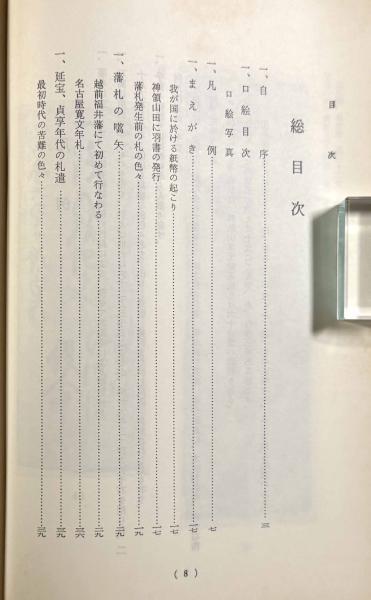 目次
総目次
一、自序……………三
一、口絵目次
口絵写真
一、凡例……………七
一、まえがき……………一七
我が国に於ける紙幣の起こり……………一七
神領山田に羽書の発行……………一七
藩札発生前の札の色々……………一九
一、藩札の嚆矢……………二九
越前福井藩にて初めて行なわる……………二九
名古屋寛文年札……………三六
一、延宝、貞享年代の札遣……………三九
最初時代の苦難の色々……………三九
(8)